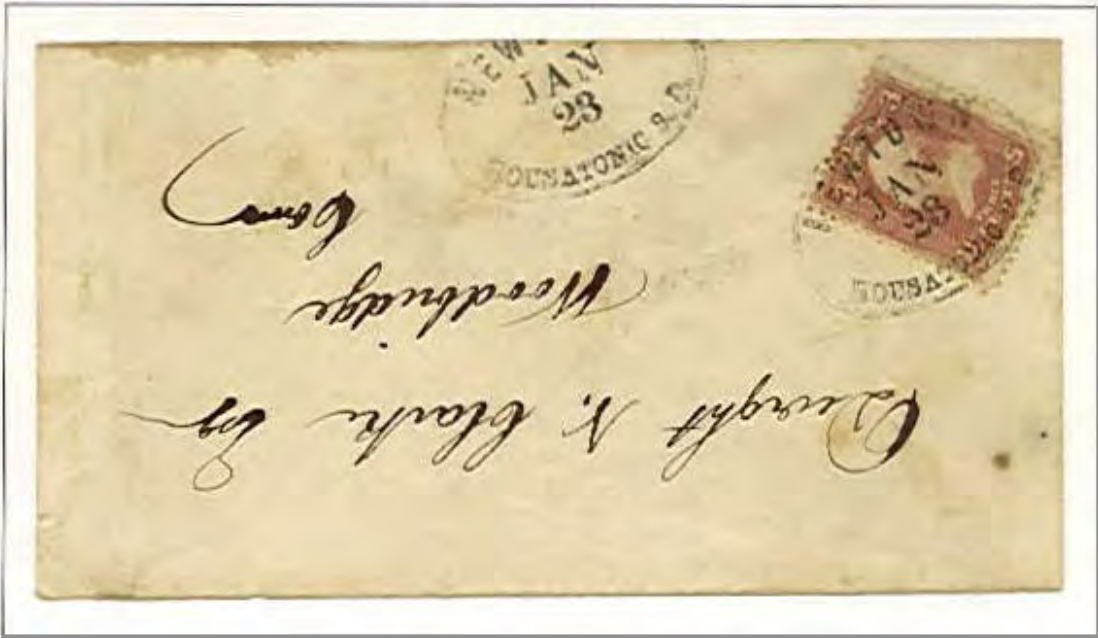 NEW
JAN
23
HOUSATONIC R.R.
NEWTOWN
JAN
23
HOUSATONIC
Dwight N. Clark Esq
Woodbridge
Conn